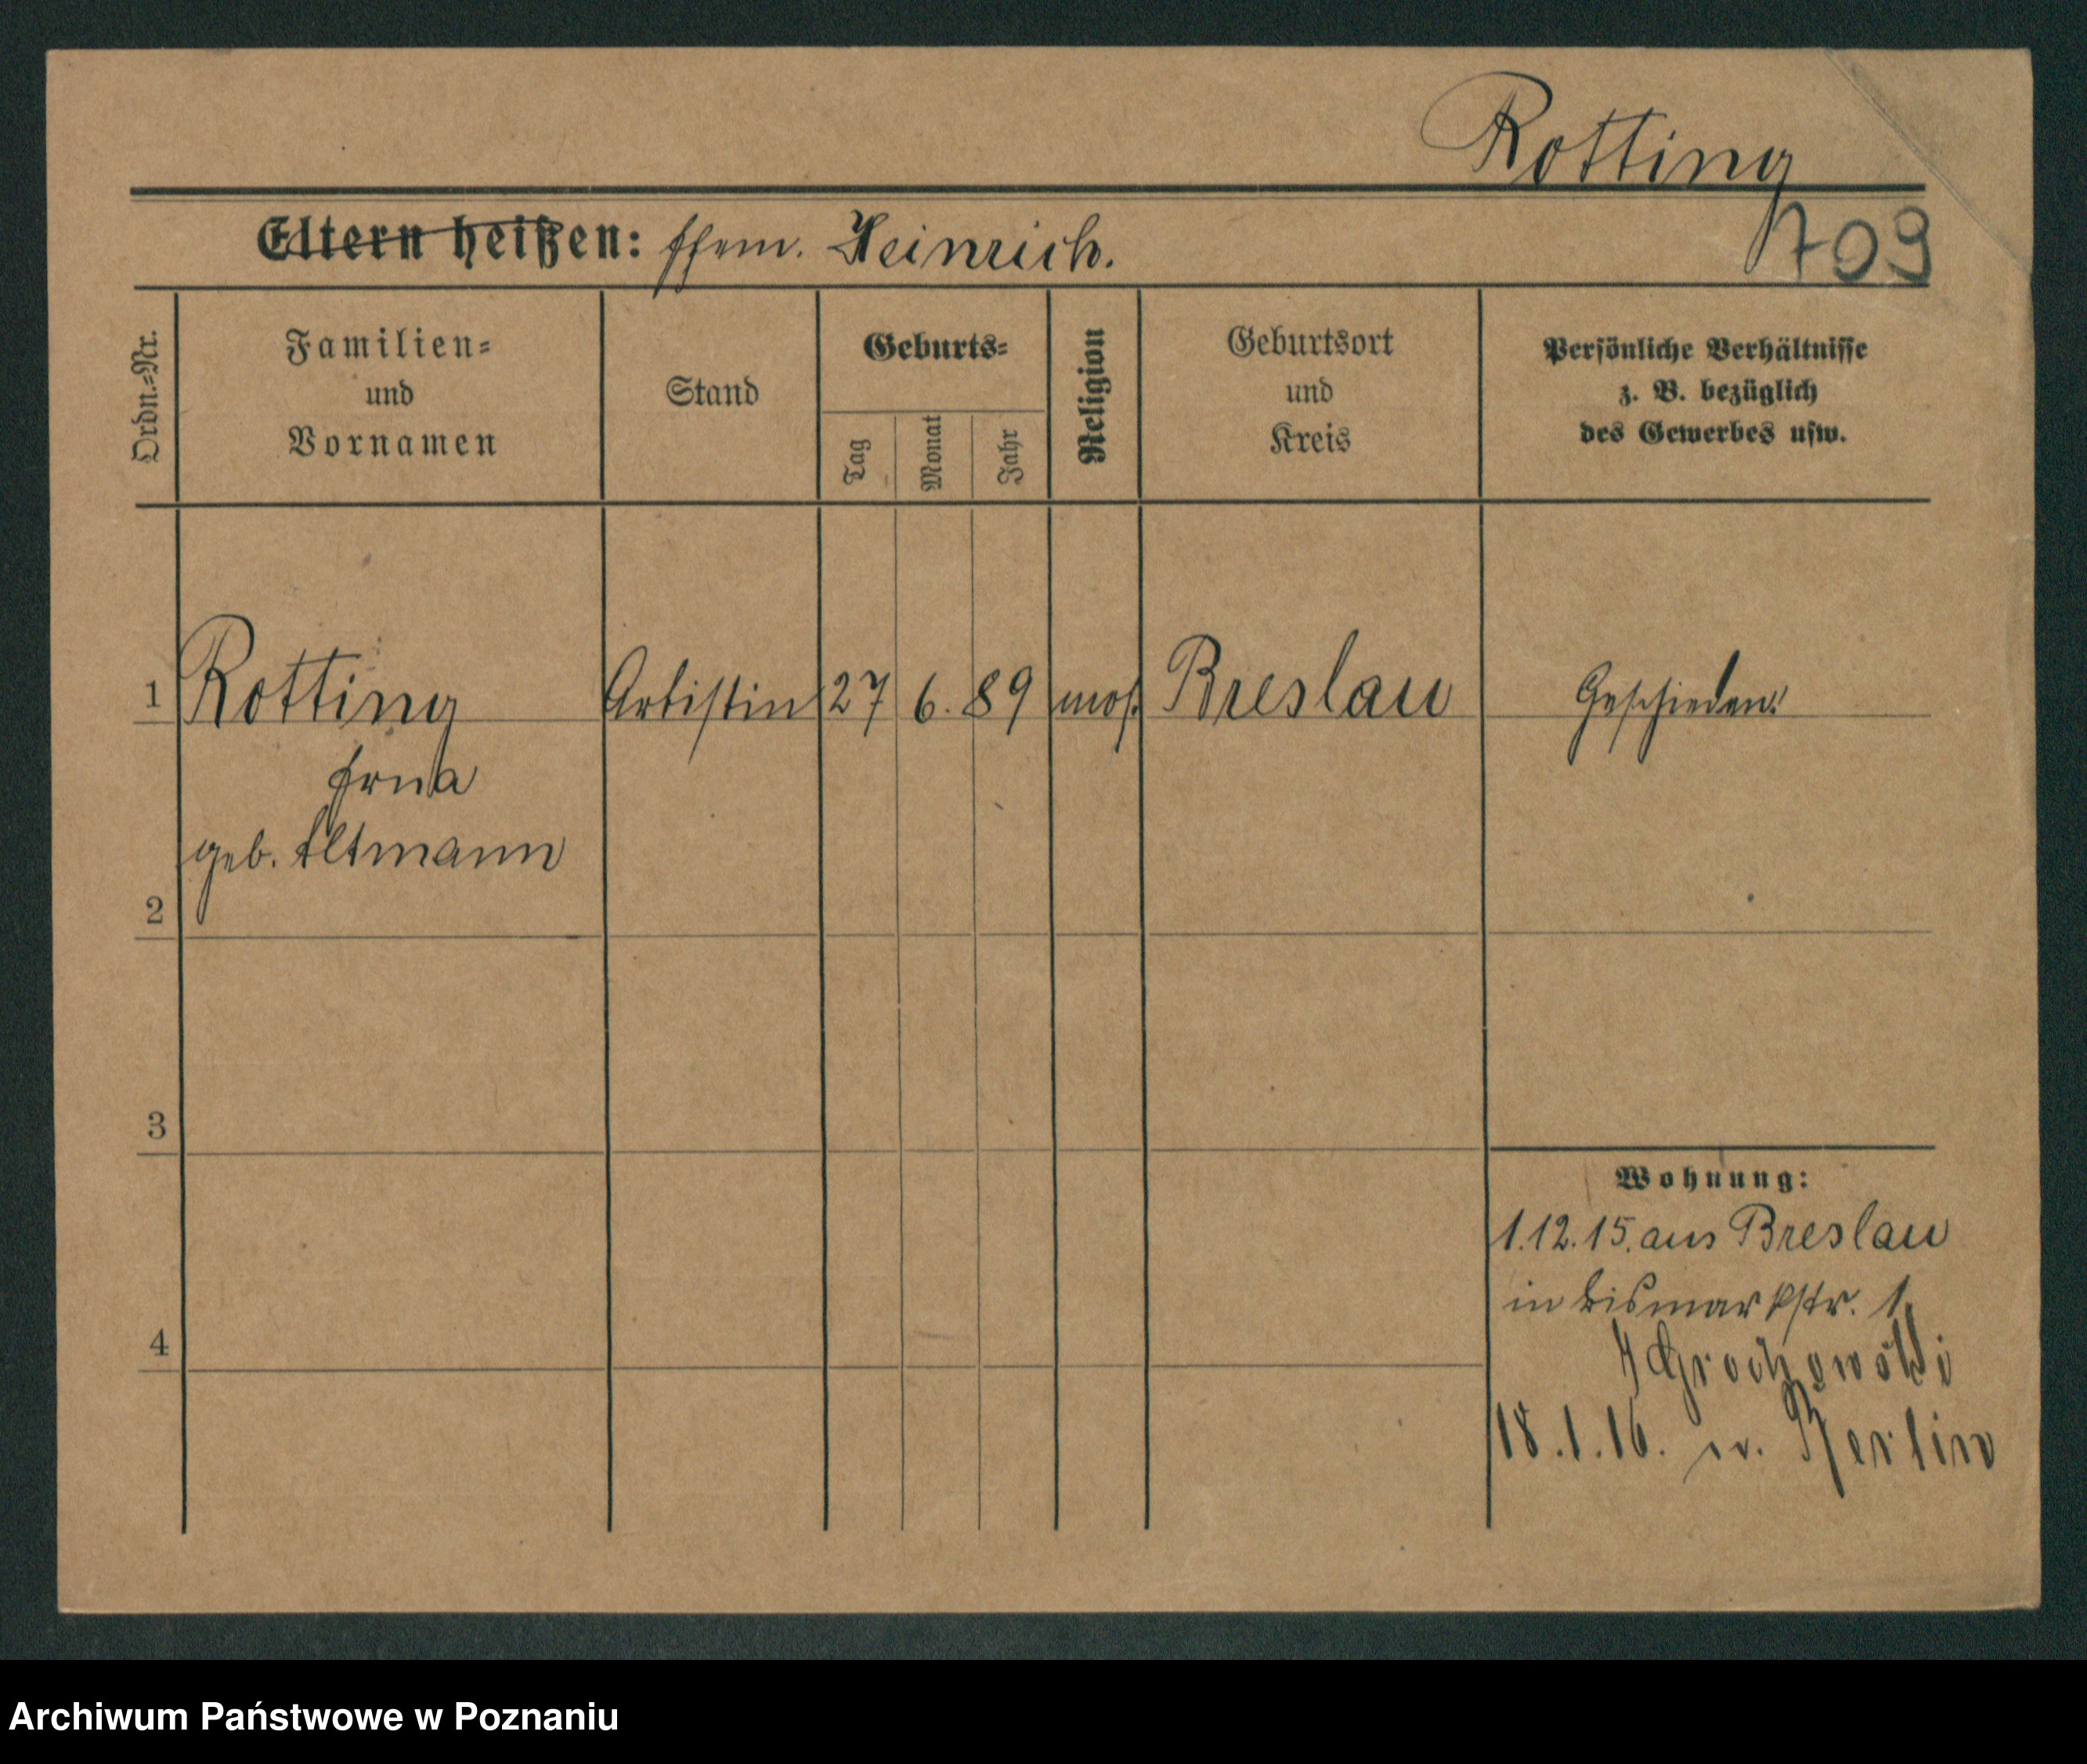 Rotting
709
Eltern heißen: Ehem. Heinrich.
Ordn.=Nr.
Familien=
und
Vornamen
Stand
Geburts=
Tag
Monat
Jahr
Religion
Geburtsort
und
Kreis
Persönliche Verhältnisse
z. B. bezüglich
des Gewerbes usw.
1 Rotting Artistin 27 6. 89 mos. Breslau Geschieden.
Erna
geb. Altmann
2
3
Wohnung:
1.12.15. aus Breslau
in Bismarkstr. 1
4
Grochowski
18.1.16. n. Berlin
Archiwum Państwowe w Poznaniu